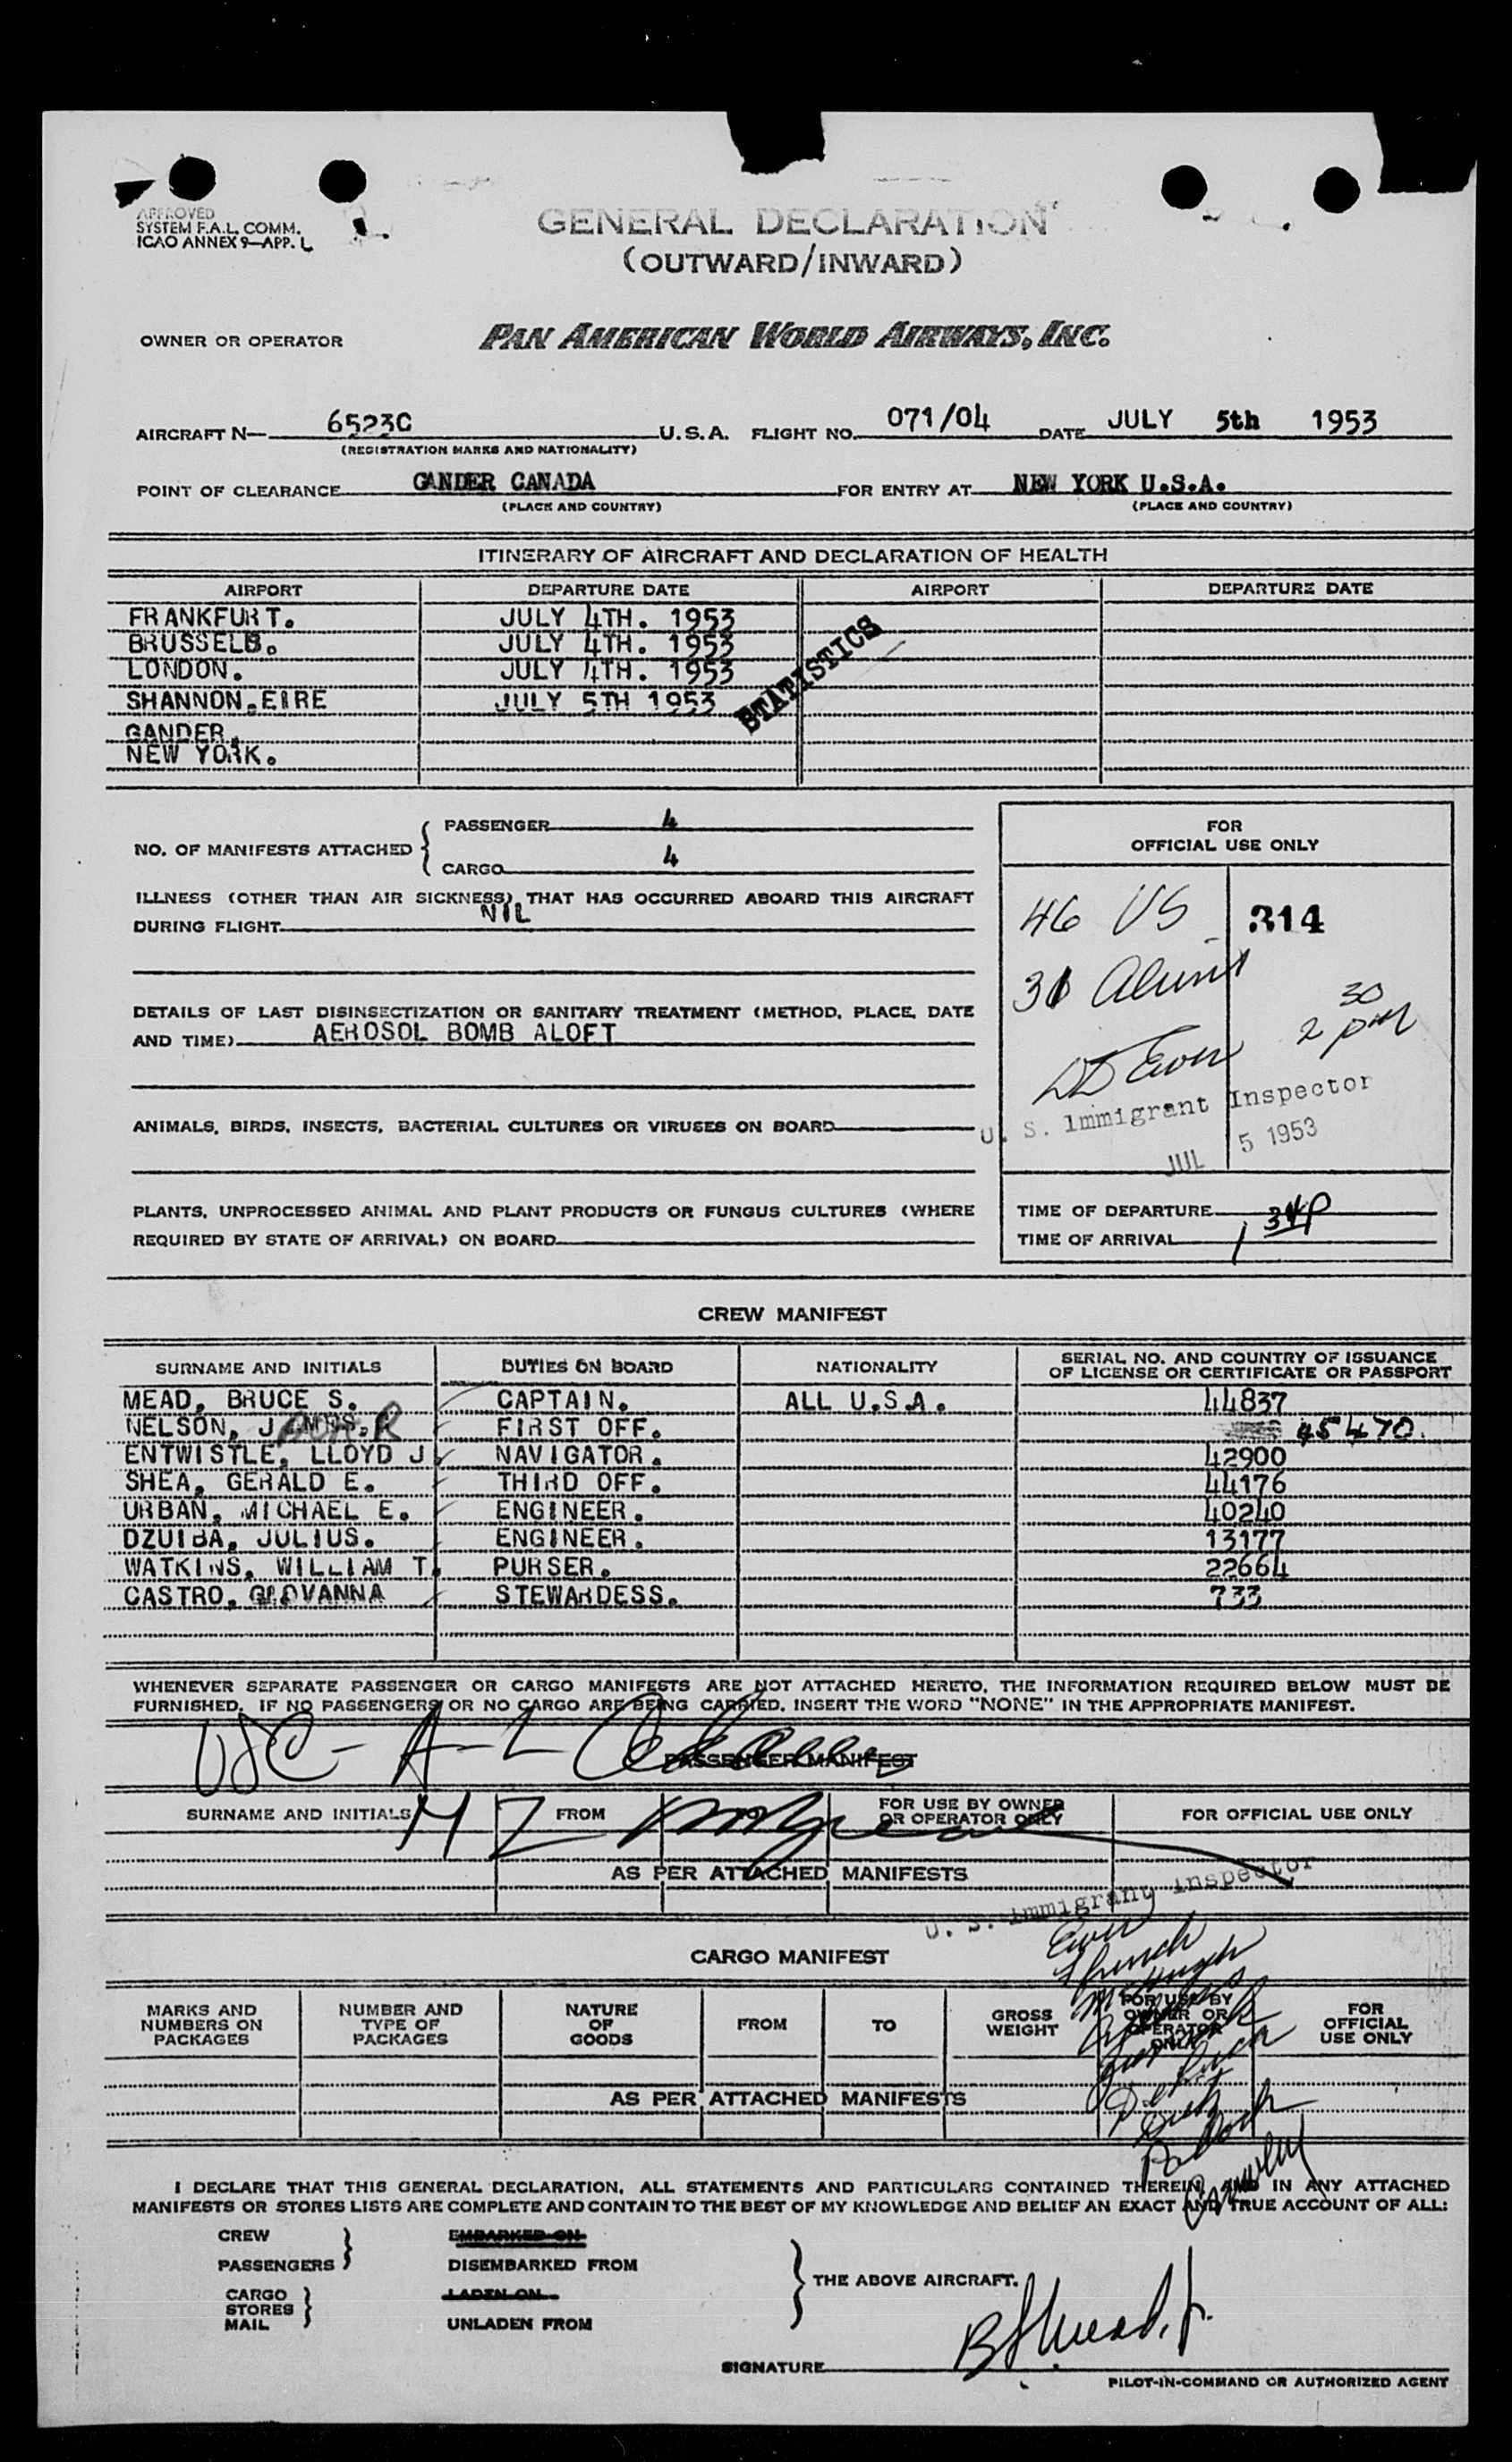 APPROVED
SYSTEM F.A.L. COMM.
ICAO ANNEX 9—APP. L
GENERAL DECLARATION
(OUTWARD/INWARD)
OWNER OR OPERATOR PAN AMERICAN WORLD AIRWAYS, INC.
AIRCRAFT N— 6523C U.S.A. FLIGHT NO. 071/04 DATE JULY 5th 1953
(REGISTRATION MARKS AND NATIONALITY)
POINT OF CLEARANCE GANDER CANADA FOR ENTRY AT NEW YORK U.S.A.
(PLACE AND COUNTRY) (PLACE AND COUNTRY)
ITINERARY OF AIRCRAFT AND DECLARATION OF HEALTH
AIRPORT DEPARTURE DATE AIRPORT DEPARTURE DATE
FRANKFURT. JULY 4TH. 1953
BRUSSELS. JULY 4TH. 1953
LONDON. JULY 4TH. 1953
SHANNON.EIRE JULY 5TH 1953
STATISTICS
GANDER.
NEW YORK.
NO. OF MANIFESTS ATTACHED { PASSENGER 4
CARGO 4
FOR
OFFICIAL USE ONLY
ILLNESS (OTHER THAN AIR SICKNESS) THAT HAS OCCURRED ABOARD THIS AIRCRAFT
DURING FLIGHT NIL
46 US 314
31
30
2 pm
DETAILS OF LAST DISINSECTIZATION OR SANITARY TREATMENT (METHOD, PLACE, DATE
AND TIME) AEROSOL BOMB ALOFT
U. S. Immigrant Inspector
JUL 5 1953
ANIMALS, BIRDS, INSECTS, BACTERIAL CULTURES OR VIRUSES ON BOARD
PLANTS, UNPROCESSED ANIMAL AND PLANT PRODUCTS OR FUNGUS CULTURES (WHERE
REQUIRED BY STATE OF ARRIVAL) ON BOARD
TIME OF DEPARTURE
TIME OF ARRIVAL 1 34p
CREW MANIFEST
SURNAME AND INITIALS DUTIES ON BOARD NATIONALITY SERIAL NO. AND COUNTRY OF ISSUANCE
OF LICENSE OR CERTIFICATE OR PASSPORT
MEAD, BRUCE S. CAPTAIN. ALL U.S.A. 44837
NELSON, FIRST OFF. 45470
ENTWISTLE, LLOYD J NAVIGATOR. 42900
SHEA, GERALD E. THIRD OFF. 44176
URBAN, MICHAEL E. ENGINEER. 40240
DZUIBA, JULIUS. ENGINEER. 13177
WATKINS, WILLIAM T. PURSER. 22664
CASTRO, GIOVANNA STEWARDESS. 733
WHENEVER SEPARATE PASSENGER OR CARGO MANIFESTS ARE NOT ATTACHED HERETO, THE INFORMATION REQUIRED BELOW MUST BE
FURNISHED. IF NO PASSENGERS OR NO CARGO ARE BEING CARRIED, INSERT THE WORD "NONE" IN THE APPROPRIATE MANIFEST.
USC - A-L
PASSENGER MANIFEST
M Z
SURNAME AND INITIALS FROM TO FOR USE BY OWNER
OR OPERATOR ONLY FOR OFFICIAL USE ONLY
AS PER ATTACHED MANIFESTS
U. S. Immigrant Inspector
CARGO MANIFEST
MARKS AND
NUMBERS ON
PACKAGES
NUMBER AND
TYPE OF
PACKAGES
NATURE
OF
GOODS
FROM
TO
GROSS
WEIGHT
FOR USE BY
OWNER OR
OPERATOR
ONLY
FOR
OFFICIAL
USE ONLY
AS PER ATTACHED MANIFESTS
I DECLARE THAT THIS GENERAL DECLARATION, ALL STATEMENTS AND PARTICULARS CONTAINED THEREIN, AND IN ANY ATTACHED
MANIFESTS OR STORES LISTS ARE COMPLETE AND CONTAIN TO THE BEST OF MY KNOWLEDGE AND BELIEF AN EXACT AND TRUE ACCOUNT OF ALL:
CREW
PASSENGERS }
EMBARKED ON
DISEMBARKED FROM
CARGO
STORES
MAIL }
LADEN ON
UNLADEN FROM
} THE ABOVE AIRCRAFT.
SIGNATURE BSMead, Jr.
PILOT-IN-COMMAND OR AUTHORIZED AGENT